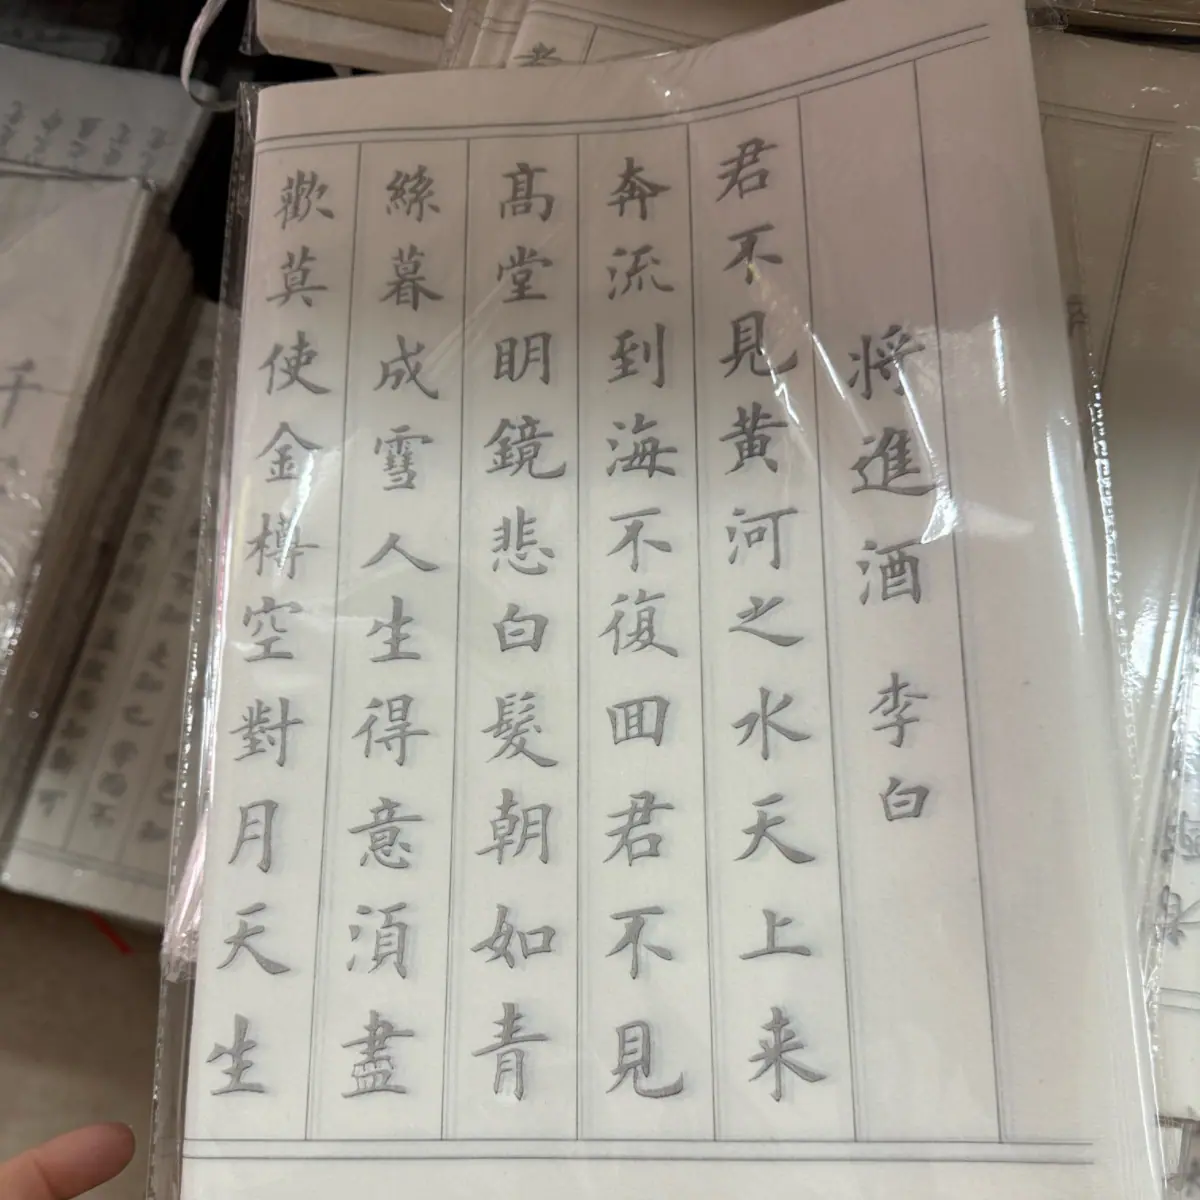 將進酒 李白
君不見黃河之水天上来
奔流到海不復回君不見
髙堂明鏡悲白髮朝如青
絲暮成雪人生得意須盡
歡莫使金樽空對月天生
千